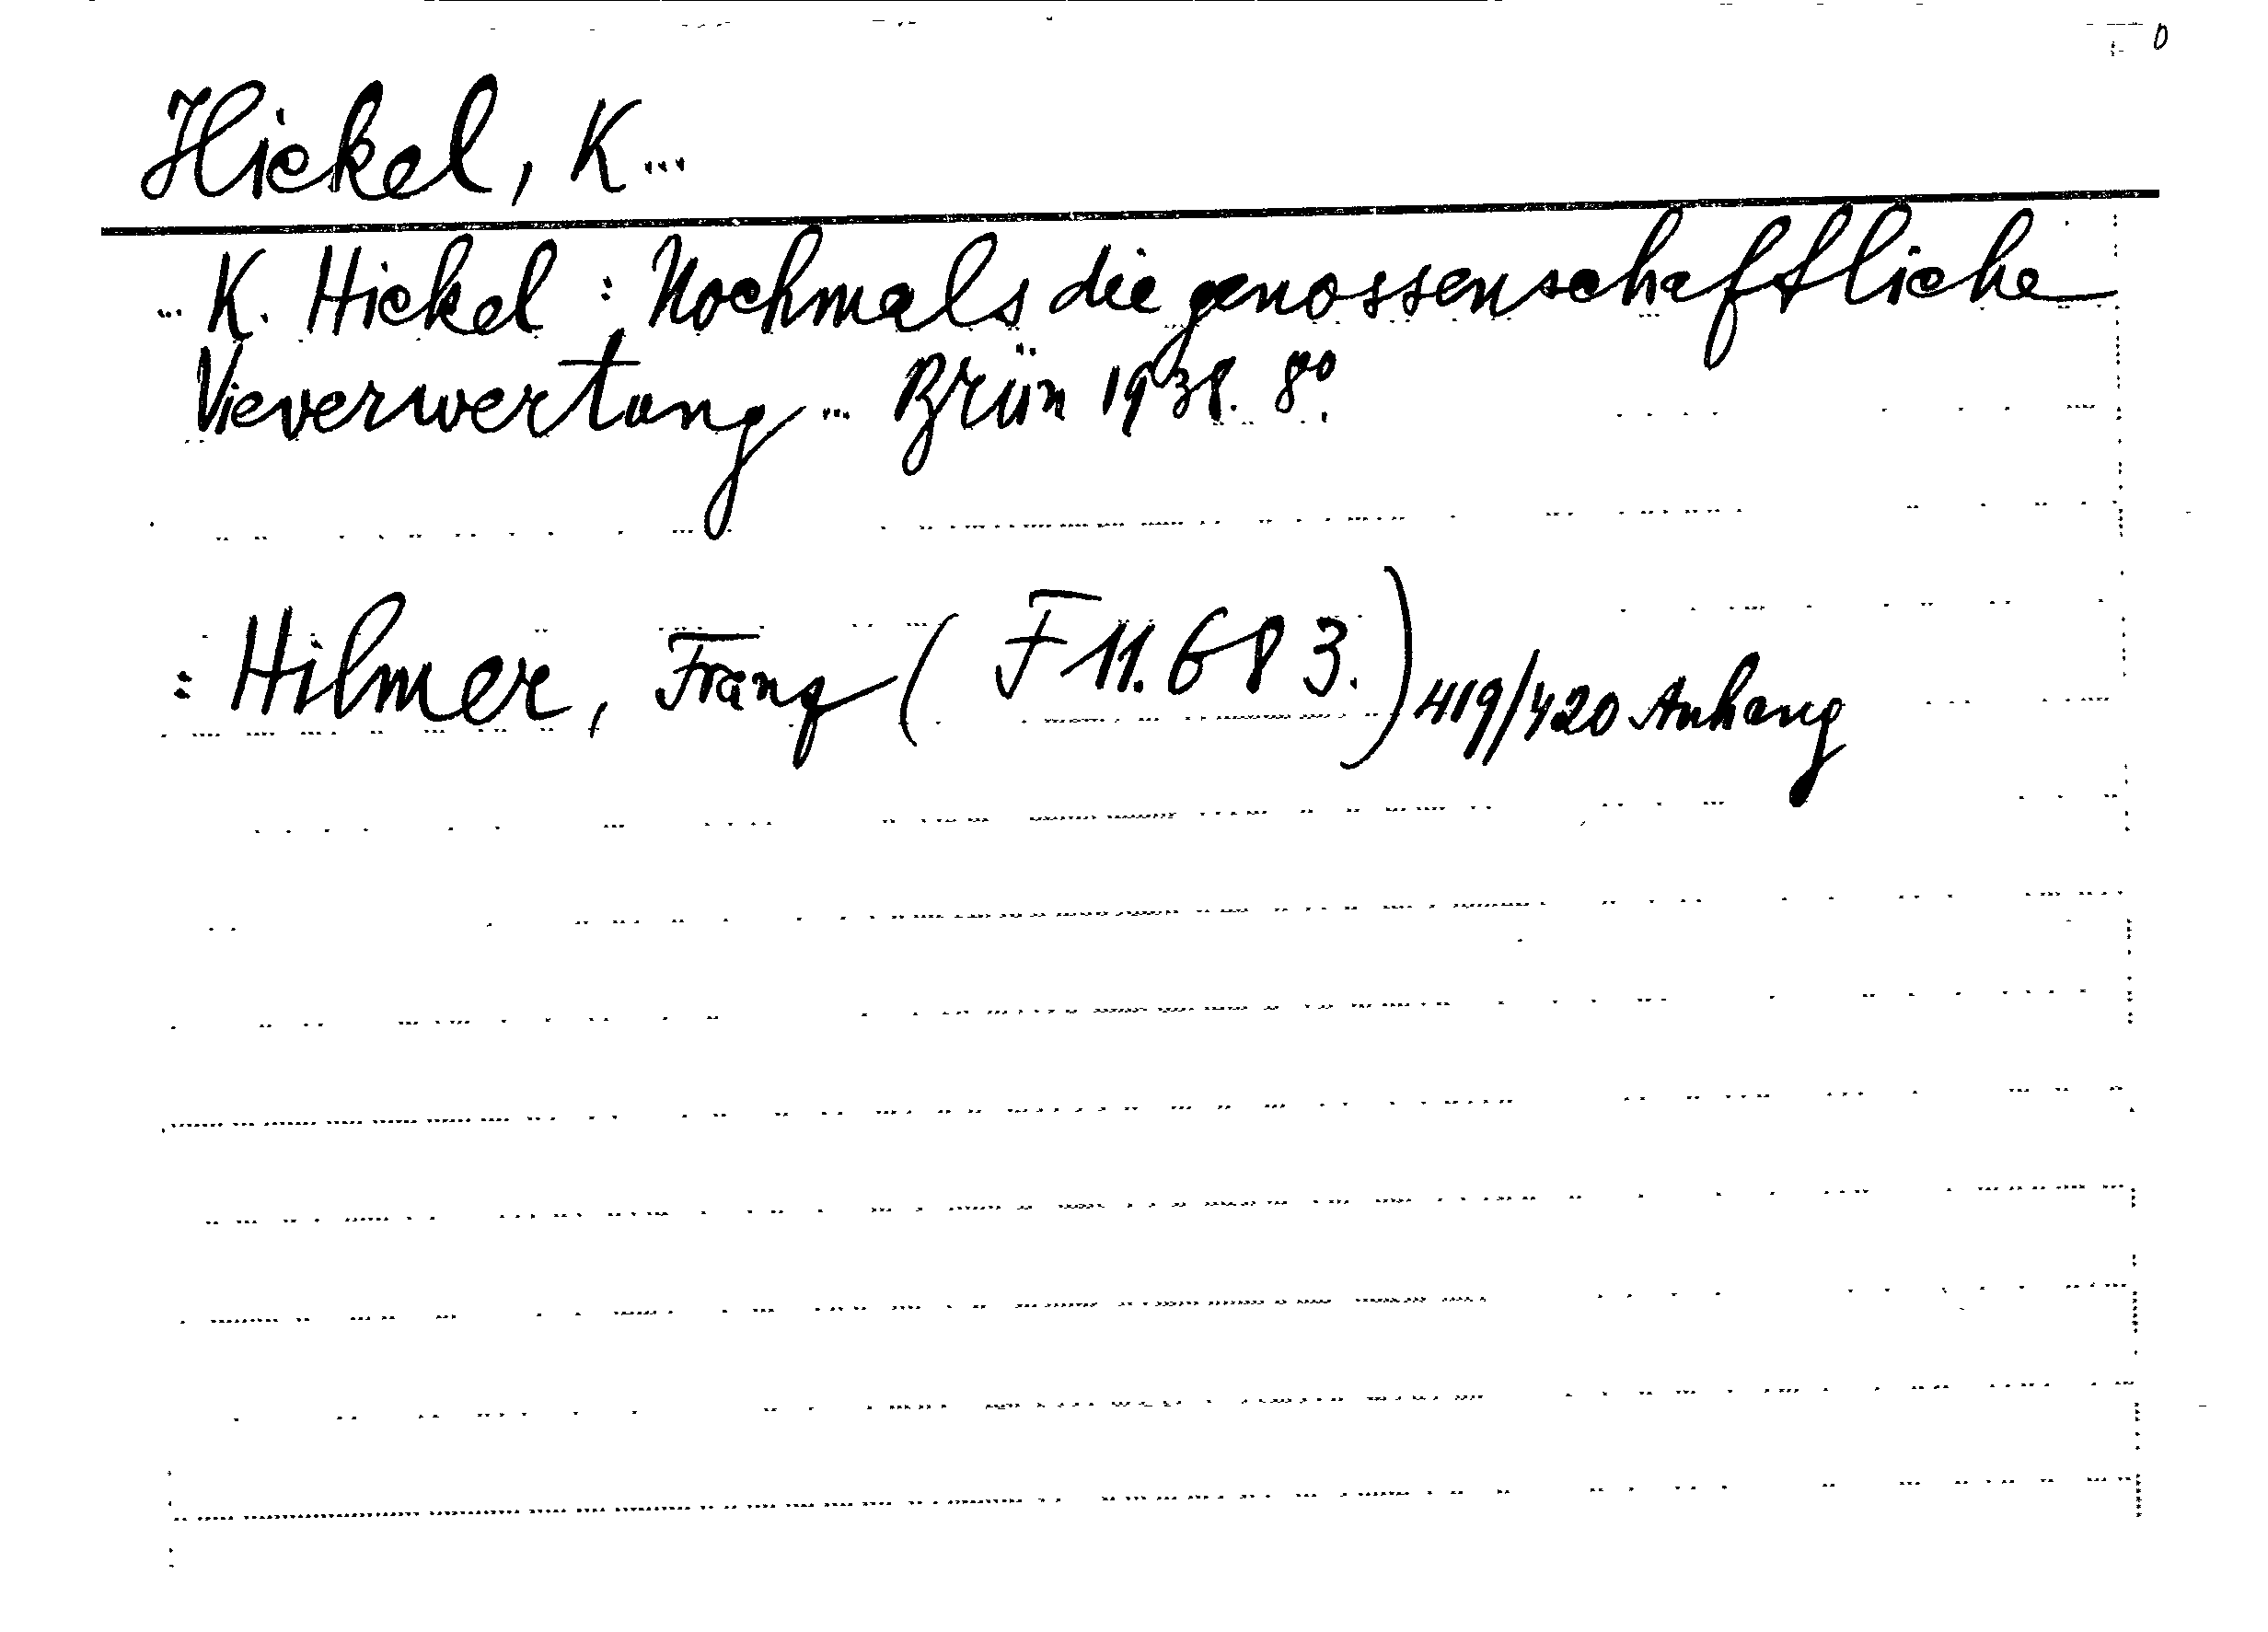 Hickel, K...
... K. Hickel : Nochmals die genossenschaftliche
Vieverwertung ... Brün 1938. 8°.
: Hilmer, Franz ( F 11.683. ) 419/420 Anhang